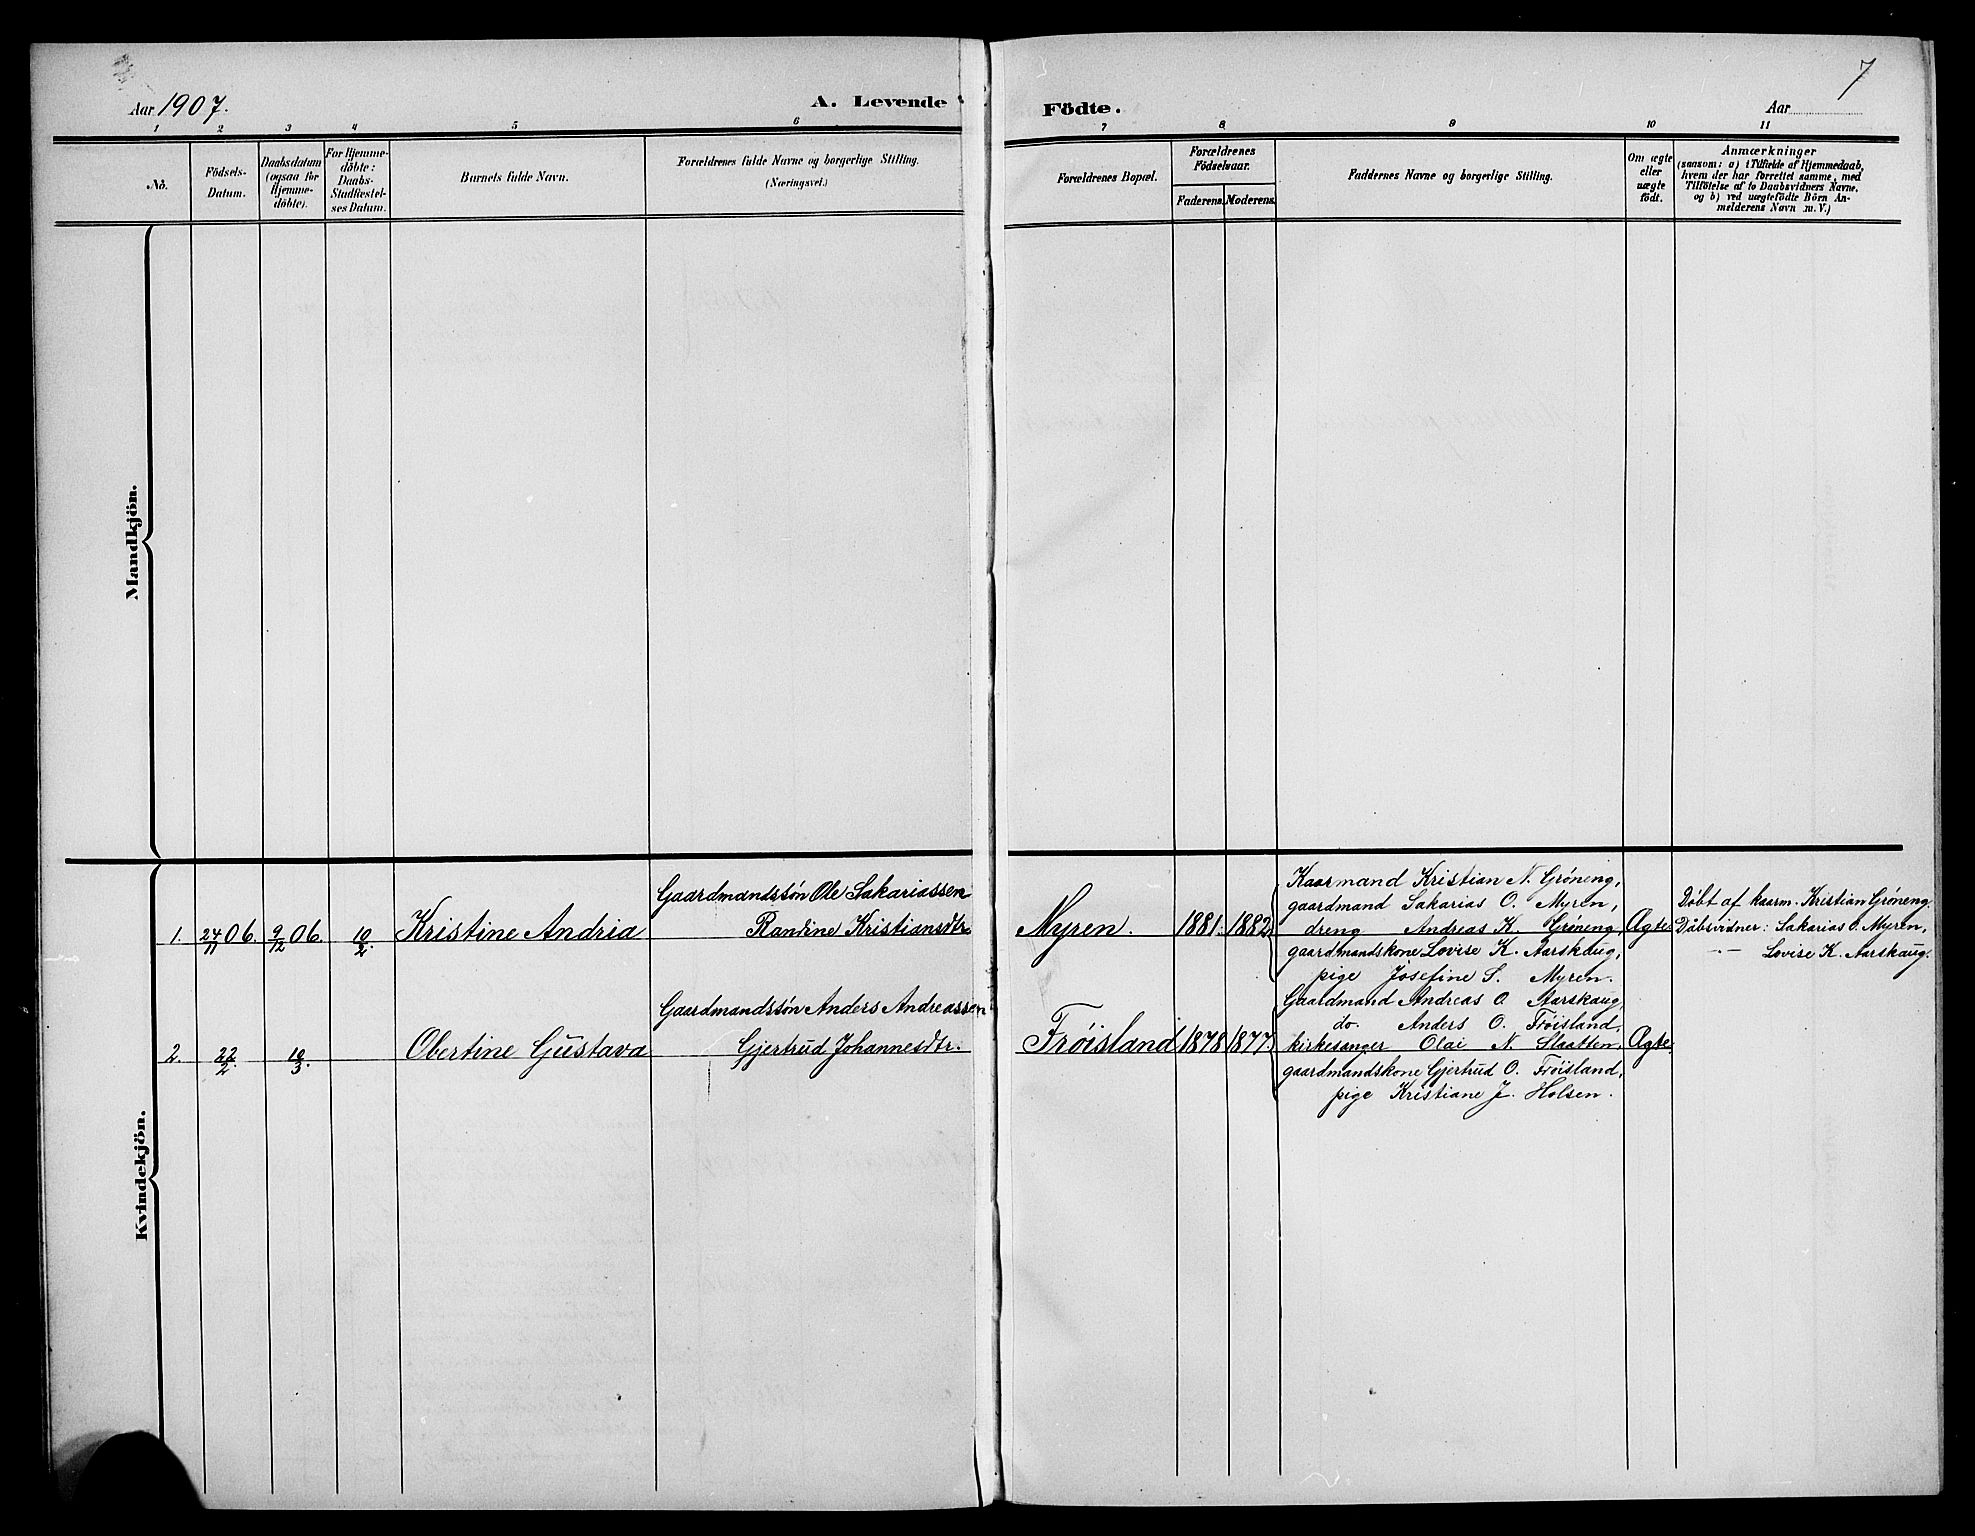 Aar 1907.
A. Levende
Födte.
Aar
7
1 2 3 4 5 6 7 8 9 10 11
No.
Födsels-
Datum.
Daabsdatum
(ogsaa for
Hjemme-
döbte).
For Hjemme-
döbte:
Daabs-
Stadfæstel-
ses Datum.
Barnets fulde Navn.
Forældrenes fulde Navne og borgerlige Stilling.
(Næringsvei.)
Forældrenes Bopæl.
Forældrenes
Födselsaar.
Faderens. Moderens.
Faddernes Navne og borgerlige Stilling.
Om ægte
eller
uægte
födt.
Anmærkninger
(saasom: a) i Tilfælde af Hjemmedaab,
hvem der har forrettet samme, med
Tilföielse af to Daabsvidners Navne,
og b) ved uægtefödte Börn An-
melderens Navn m. V.)
Mandkjön.
Kvindekjön.
Gaardmandssøn Ole Sakariassen
1. 24/11 06. 9/12 06. 10/2. Kristine Andria Randine Kristiansdtr.
Myren. 1881. 1882.
Kaarmand Kristian N. Grøneng,
gaardmand Sakarias O. Myren,
dreng Andreas K. Grøneng,
gaardmandskone Lovise K. Aarskaug,
pige Josefine S. Myren.
Ægte.
Døbt af kaarm. Kristian Grøneng.
Daabsvidner: Sakarias O. Myren,
—"— Lovise K. Aarskaug.
Gaardmandssøn Anders Andreassen
2. 22/2. 10/3. Obertine Gustava Gjertrud Johannesdtr.
Frøisland 1878 1877.
Gaardmand Andreas O. Aarskaug,
do. Anders O. Frøisland,
kirkesanger Olai N. Slaatten,
gaardmandskone Gjertrud O. Frøisland,
pige Kristiane J. Holsen.
Ægte.